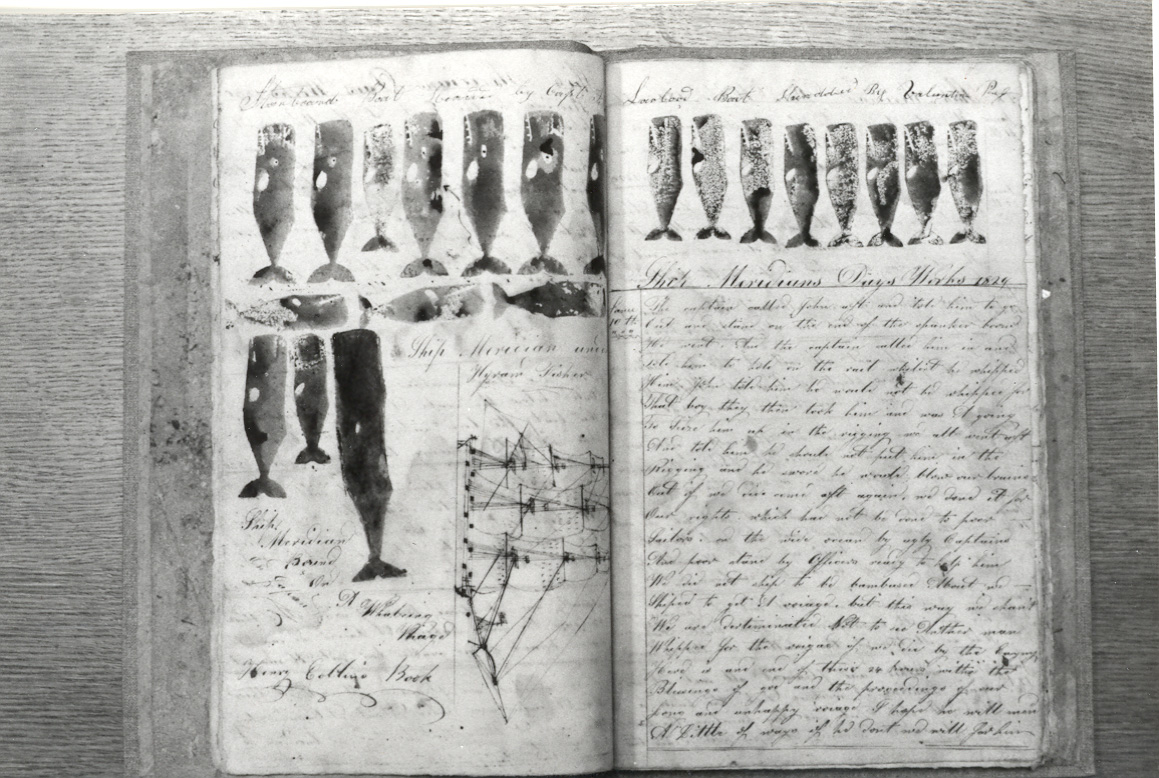 Starboard Boat headed by Capt
Ship Meridian under
Hyram Fisher
Ship
Meridian
Bound
On
A Whaleing
Voiage
Henry Coblins Book
Larbord Boat Headded By Valuntin Pey
Ship Meridians Days Works 1829
The captain called John aft and tole him to go
out and stane on the end of the spanker boom
He went. And the captain called him in and
tole him to hole on the rail whilst he whipped
Him. John tole him he would not be whipped for
that boy they then took him and was A going
to Sieze him up in the rigging we all went aft
And tole him he should not put him in the
Rigging and he swore he would blow our brains
Out if we ever came aft again. we done it for
Our rights which has not be done to poor
Sailors. on the wide ocean by ugly Captains
And poor done by Officers ready to help him
We did not ship to be bambused About we
Shiped to get A voiage. but this way we shant
We are determinated Not to see Another man
Whipped for the voiage if we die by the
and one of these 24 hours within the
Blessings of god and the proceedings of our
long and unhappy voiage I hope he will mend
A Little of ways if he dont we will for him